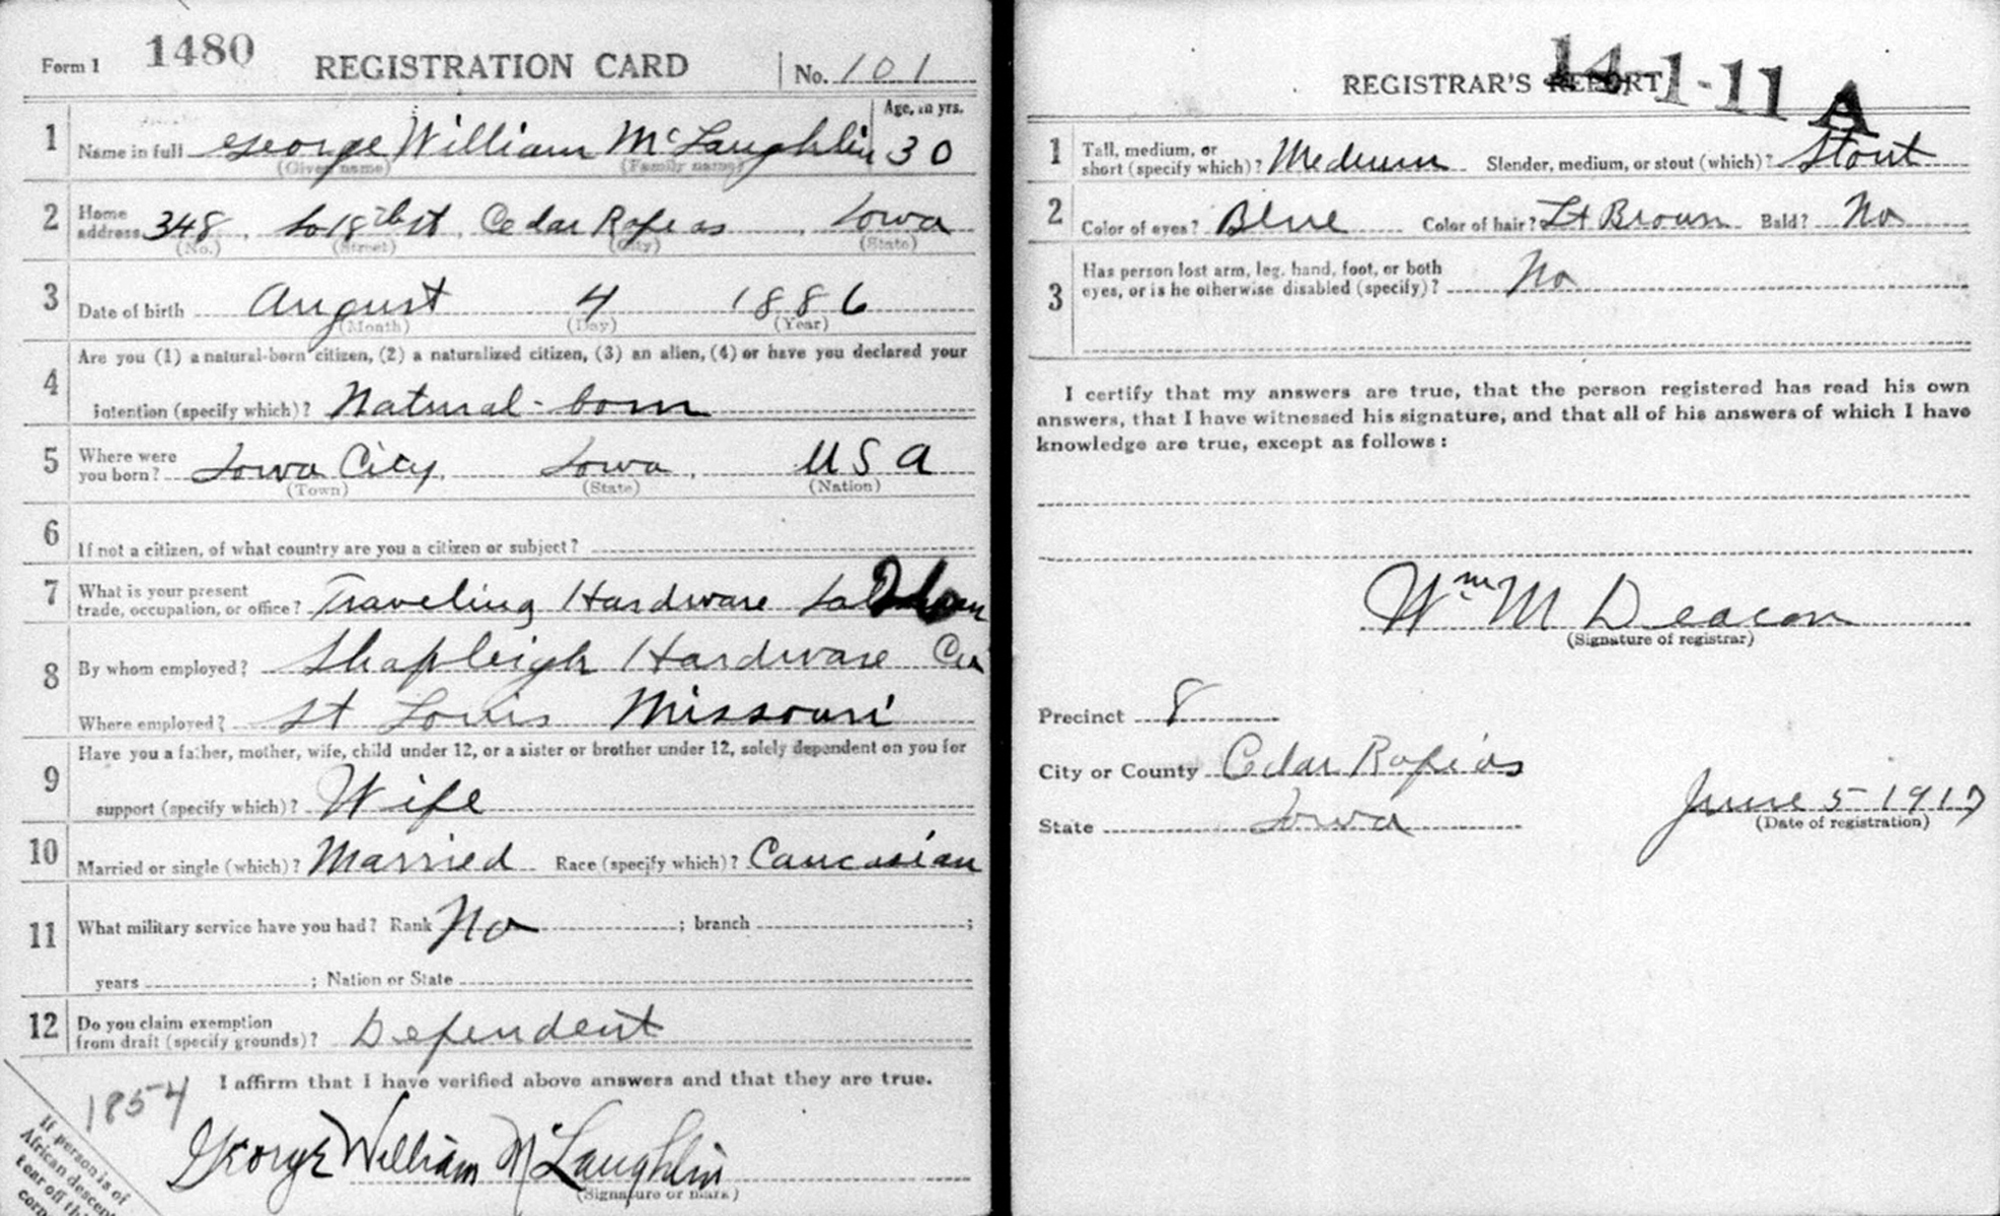 Form 1 1480 REGISTRATION CARD No. 101
Age, in yrs.
1 Name in full George William McLaughlin 30
(Given name) (Family name)
2 Home
address 348, So 18th St, Cedar Rapids, Iowa
(No.) (Street) (City) (State)
3 Date of birth August 4 1886
(Month) (Day) (Year)
Are you (1) a natural-born citizen, (2) a naturalized citizen, (3) an alien, (4) or have you declared your
4 intention (specify which)? Natural-born
5 Where were
you born? Iowa City, Iowa, USA
(Town) (State) (Nation)
6 If not a citizen, of what country are you a citizen or subject?
7 What is your present
trade, occupation, or office? Traveling Hardware
8 By whom employed? Shapleigh Hardware Co
Where employed? St Louis Missouri
Have you a father, mother, wife, child under 12, or a sister or brother under 12, solely dependent on you for
9 support (specify which)? Wife
10 Married or single (which)? Married Race (specify which)? Caucasian
11 What military service have you had? Rank No ; branch ;
years ; Nation or State
12 Do you claim exemption
from draft (specify grounds)? Dependent
I affirm that I have verified above answers and that they are true.
1854
George William McLaughlin
(Signature or mark)
If person is of
African descent
tear off this
corn
REGISTRAR'S REPORT 14-1-11 A
1 Tall, medium, or
short (specify which)? Medium Slender, medium, or stout (which)? Stout
2 Color of eyes? Blue Color of hair? Lt Brown Bald? No
3 Has person lost arm, leg, hand, foot, or both
eyes, or is he otherwise disabled (specify)? No
I certify that my answers are true, that the person registered has read his own
answers, that I have witnessed his signature, and that all of his answers of which I have
knowledge are true, except as follows:
Wm M Deacon
(Signature of registrar)
Precinct 8
City or County Cedar Rapids
State Iowa
June 5 1917
(Date of registration)